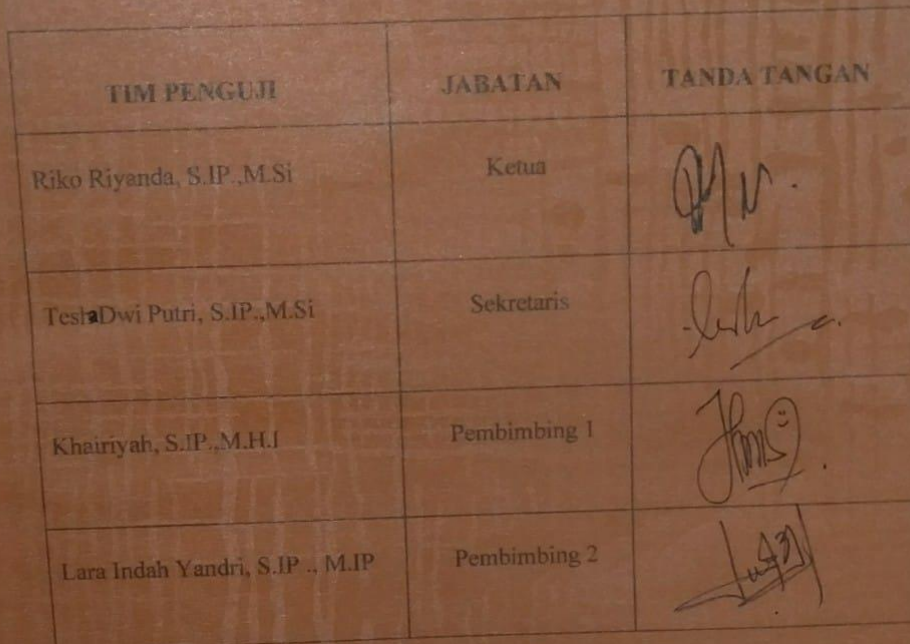 TIM PENGUJI JABATAN TANDA TANGAN
Riko Riyanda, S.IP.,M.Si Ketua
TeslaDwi Putri, S.IP.,M.Si Sekretaris
Khairiyah, S.IP.,M.H.I Pembimbing 1
Lara Indah Yandri, S.IP ., M.IP Pembimbing 2